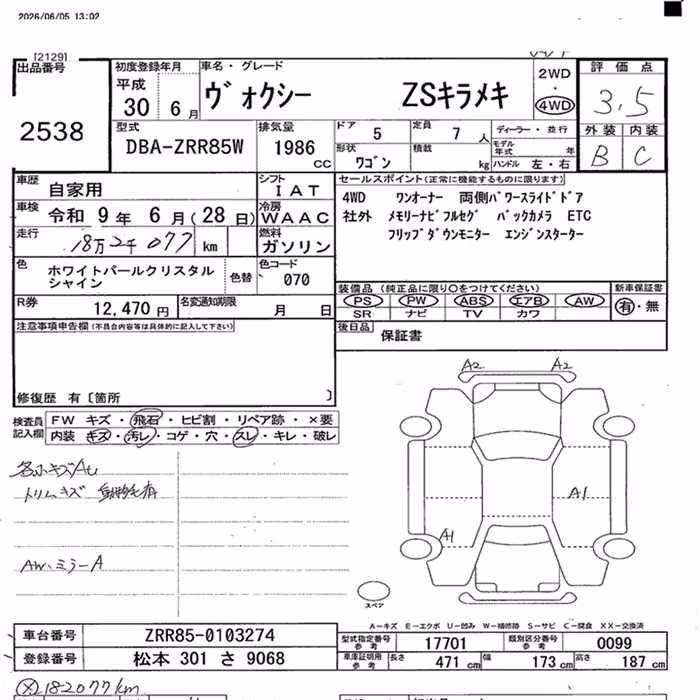 2026/06/05 13:02
[2129]
出品番号
2538
初度登録年月
平成
30 6 月
車名・グレード
ヴォクシー ZSキラメキ
2WD
・
4WD
評価点
3.5
外装 内装
B C
型式
DBA-ZRR85W
排気量
1986
CC
ドア 5
定員 7 人
ディーラー・並行
形状
ワゴン
積載 kg
モデル年式 年
ハンドル 左・右
車歴 自家用
シフト IAT
車検 令和 9 年 6 月 ( 28 日)
冷房 WAAC
走行 18万2千077 km
燃料 ガソリン
色 ホワイトパールクリスタル
シャイン
色替
色コード
070
R券 12,470 円
名変通知期限 月 日
セールスポイント(正常に機能するものに限ります)
4WD ワンオーナー 両側パワースライドドア
社外 メモリーナビフルセグ バックカメラ ETC
フリップダウンモニター エンジンスターター
装備品 (純正品に限り○をつけてください)
新車保証書
PS PW ABS エアB AW
有・無
SR ナビ TV カワ
後日品 保証書
注意事項申告欄(不具合内容等は具体的に記入して下さい)
修復歴 有〔箇所 〕
検査員
記入欄
FW キズ・飛石・ヒビ割・リペア跡・×要
内装 キズ・汚レ・コゲ・穴・スレ・キレ・破レ
各小キズAU
トリムキズ 動物毛有
AW、ミラーA
A2 A2
A1
A1
スペア
A-キズ E-エクボ U-凹み W-補修跡 S-サビ C-腐食 XX-交換済
車台番号 ZRR85-0103274
登録番号 松本 301 さ 9068
型式指定番号
参考
17701
類別区分番号
参考
0099
車庫証明用
参考
長さ 471 cm 幅 173 cm 高さ 187 cm
182077km